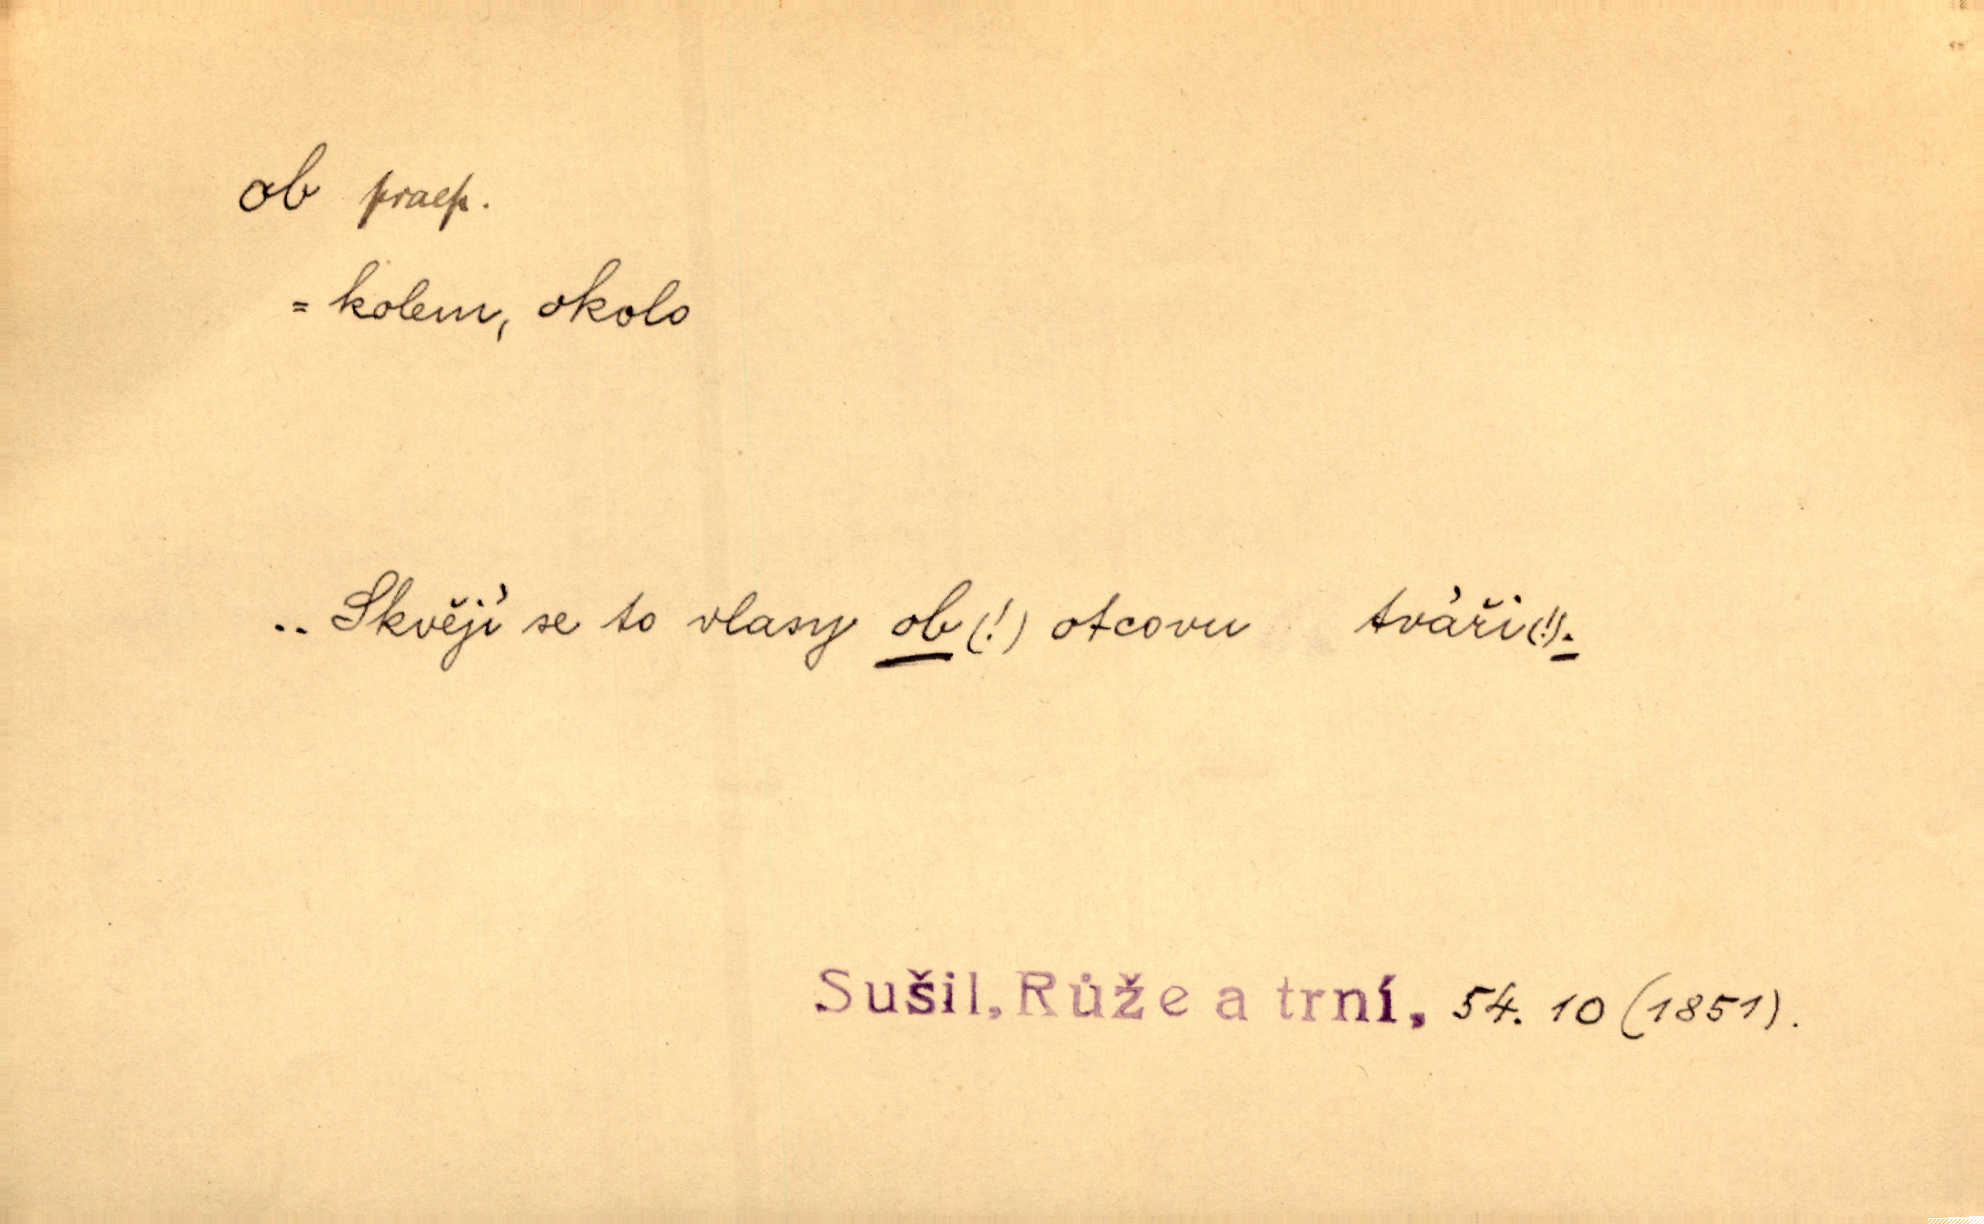 ob praep.
= kolem, okolo
.. Skvějí se to vlasy ob (!) otcovu tváři (!).
Sušil, Růže a trní, 54. 10 (1851).